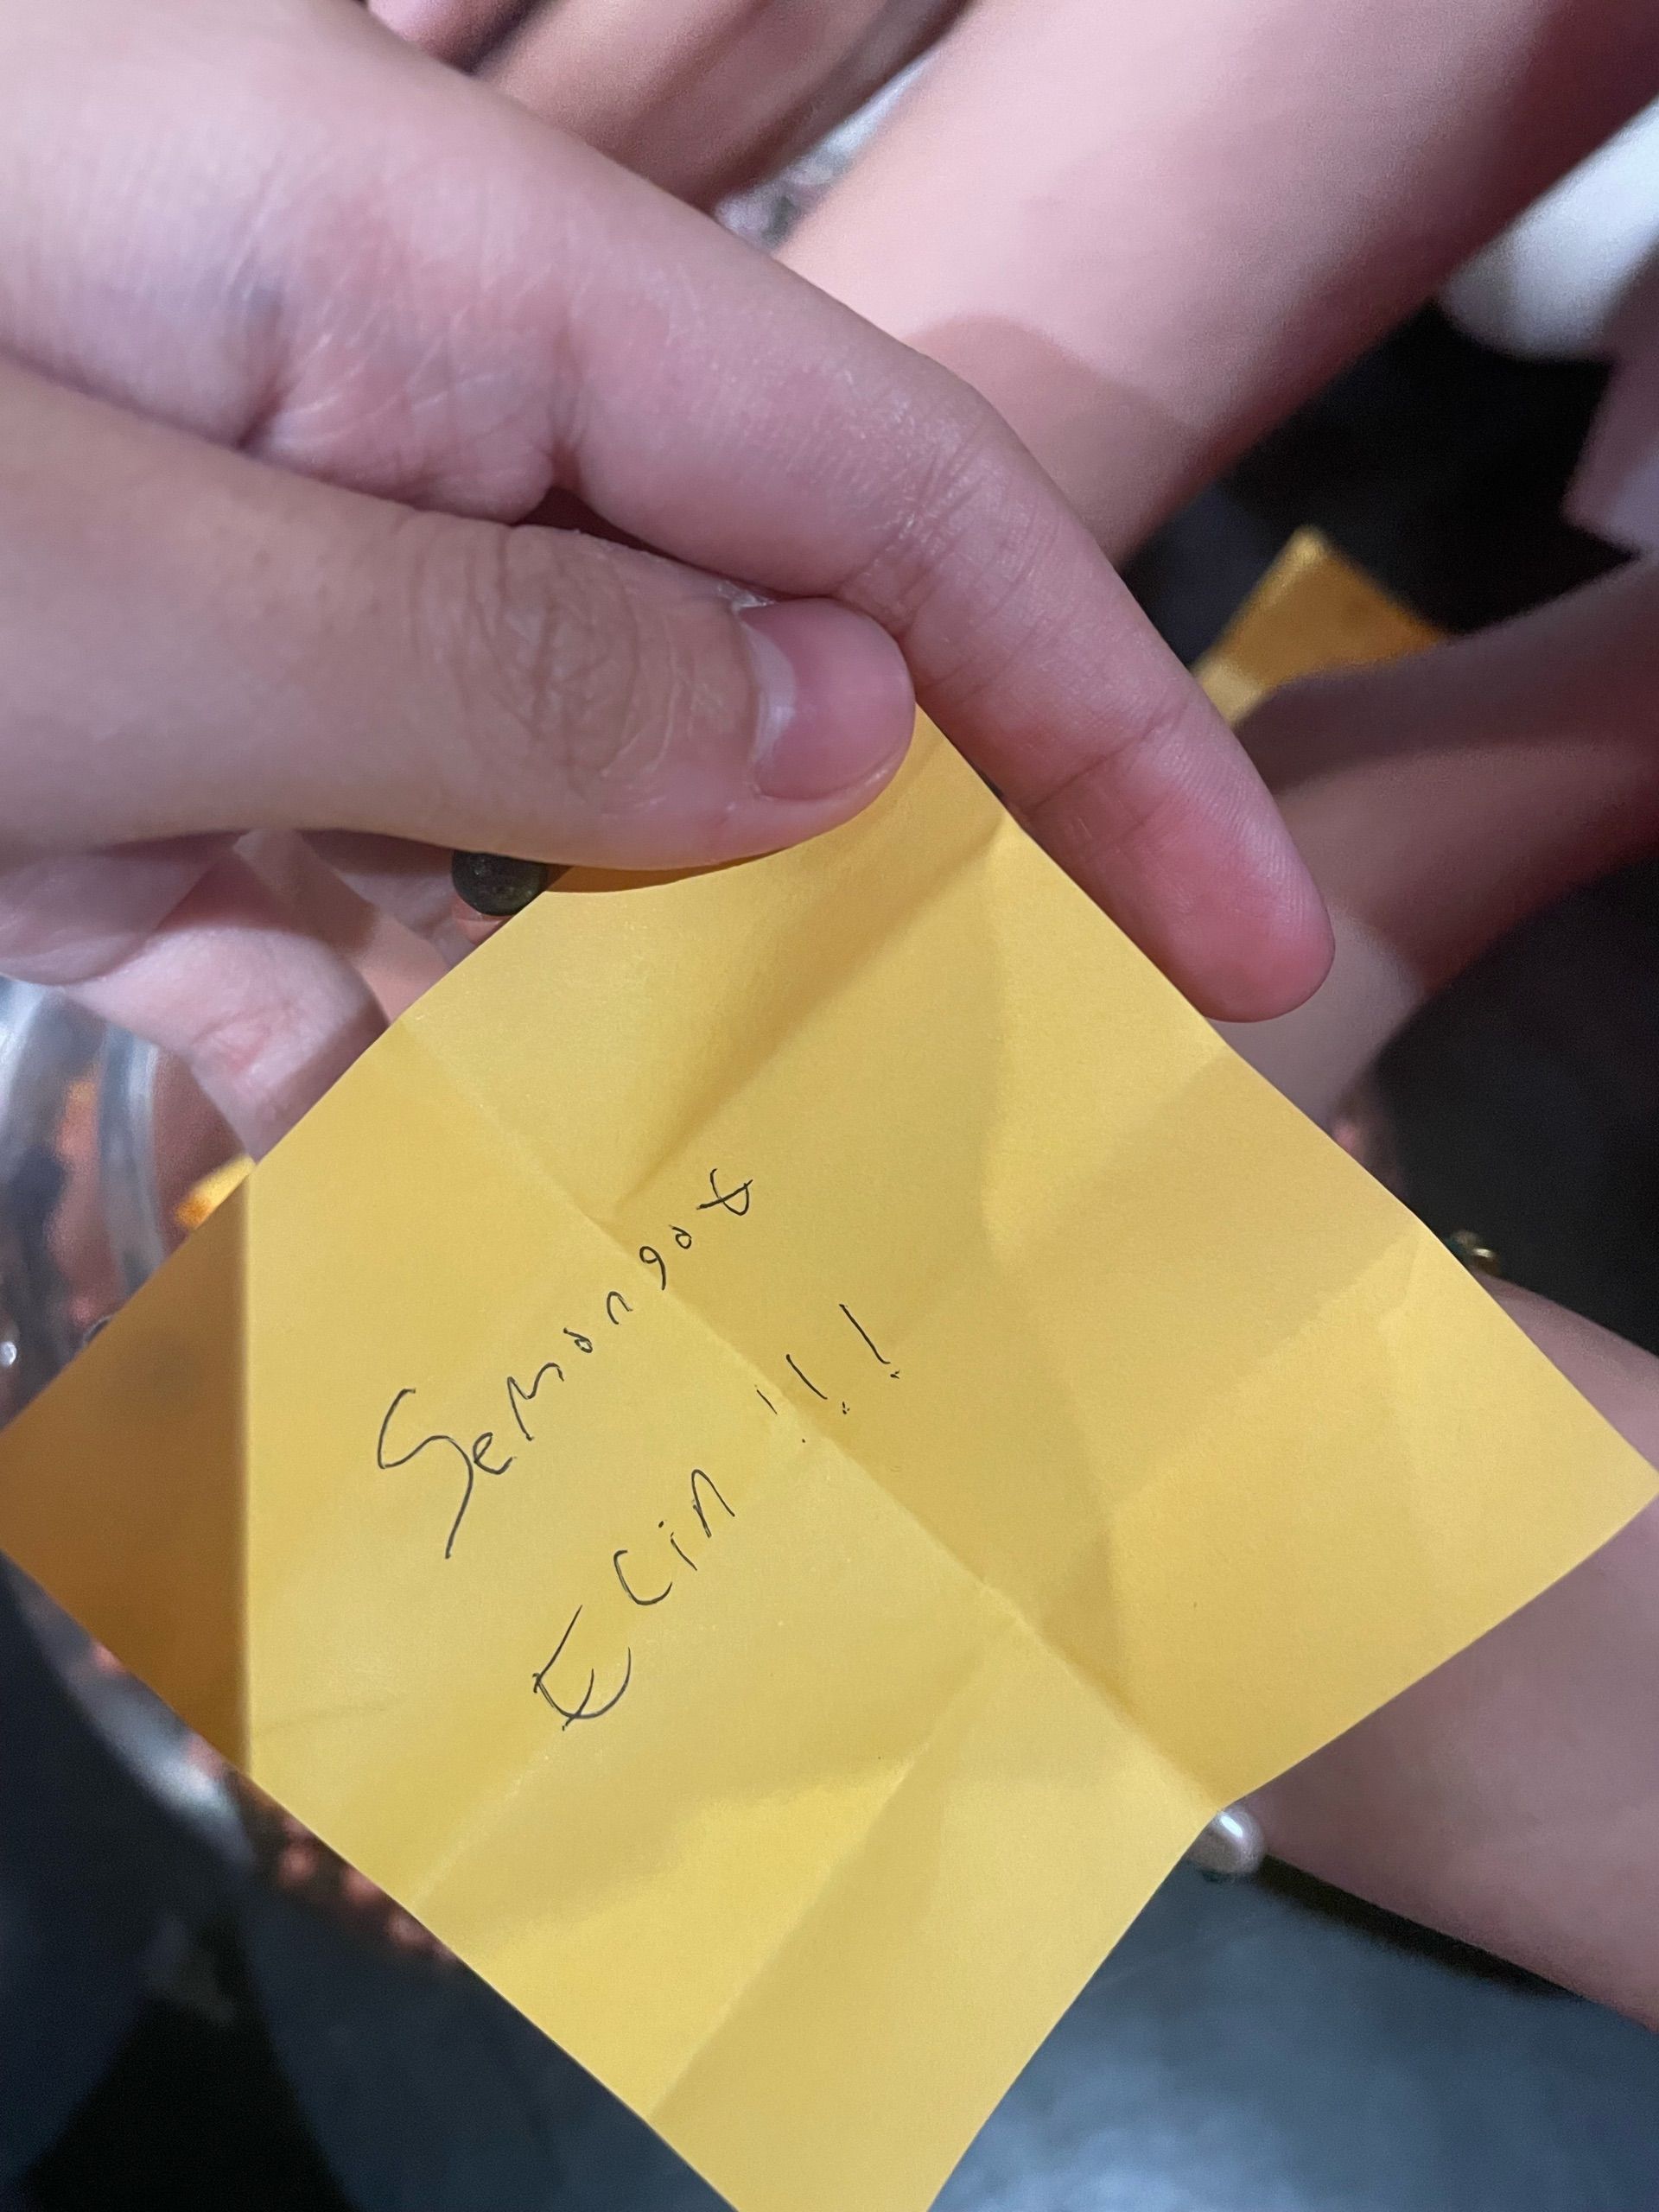 Semangat
Ecin !!!